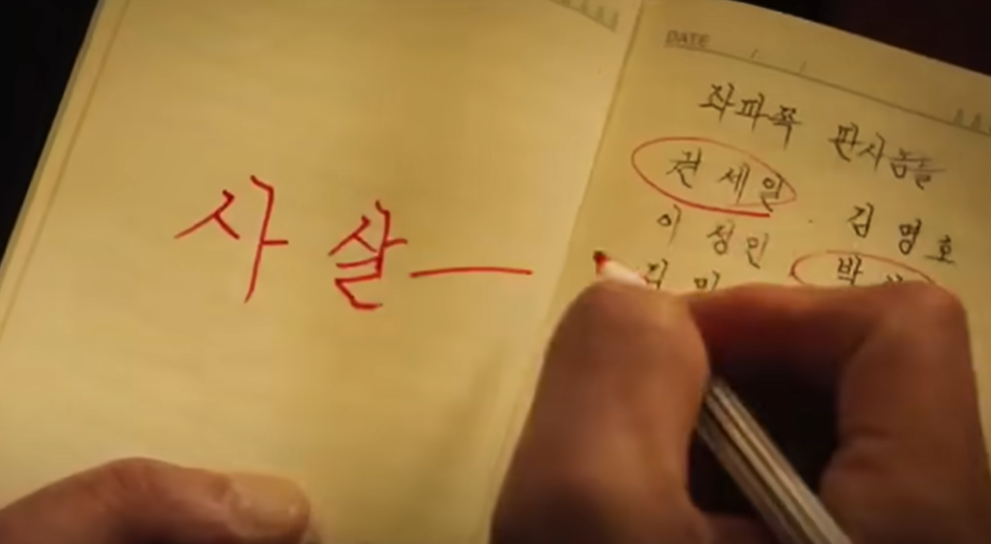 사살
DATE / /
좌파쪽 판사놈들
권세일 · 김명호
이정인 · 박